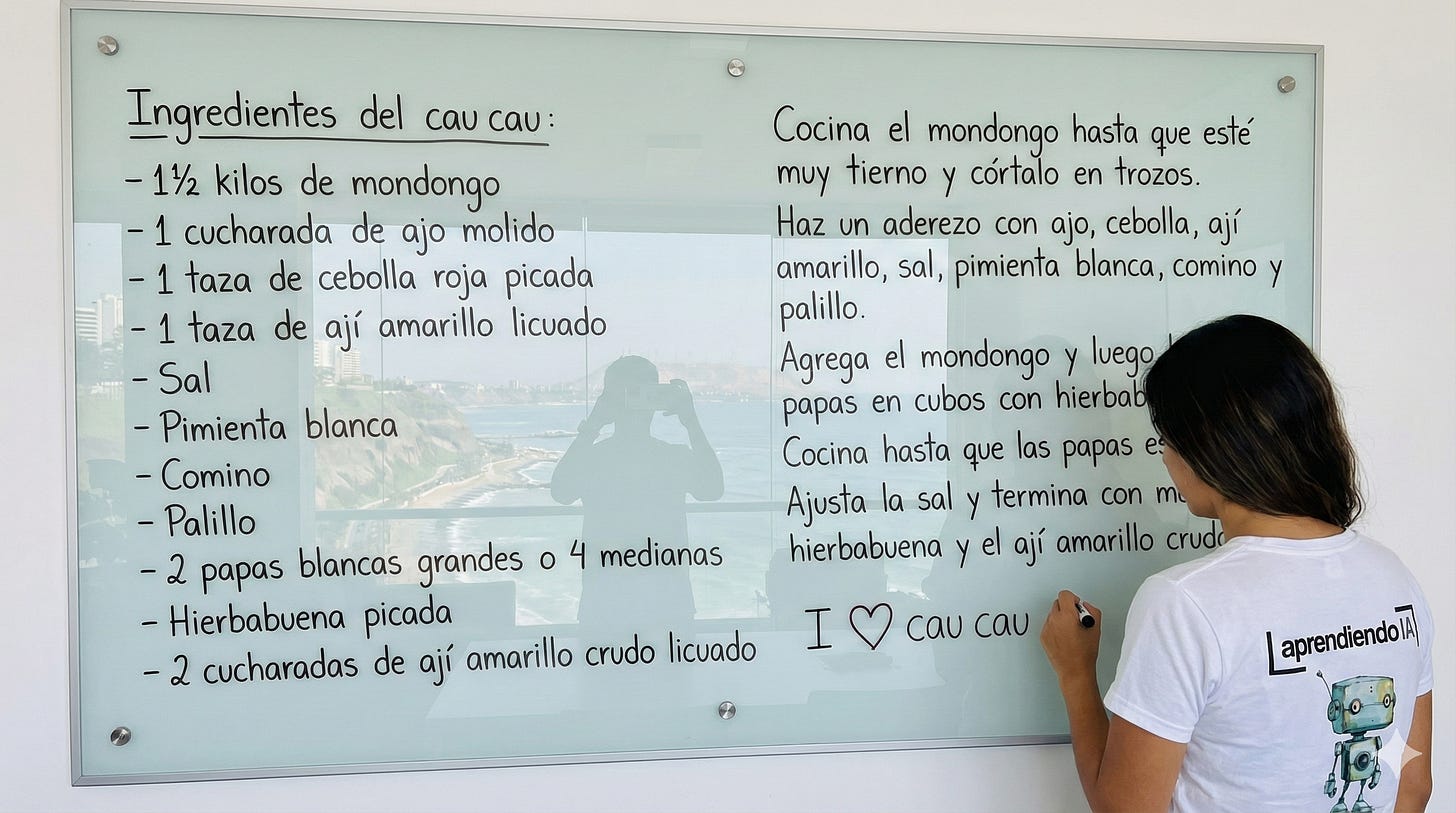 Ingredientes del cau cau:
- 1½ kilos de mondongo
- 1 cucharada de ajo molido
- 1 taza de cebolla roja picada
- 1 taza de ají amarillo licuado
- Sal
- Pimienta blanca
- Comino
- Palillo
- 2 papas blancas grandes o 4 medianas
- Hierbabuena picada
- 2 cucharadas de ají amarillo crudo licuado
Cocina el mondongo hasta que esté
muy tierno y córtalo en trozos.
Haz un aderezo con ajo, cebolla, ají
amarillo, sal, pimienta blanca, comino y
palillo.
Agrega el mondongo y luego
papas en cubos con
Cocina hasta que las papas
Ajusta la sal y termina con
hierbabuena y el ají amarillo
I ♡ cau cau
aprendiendo IA